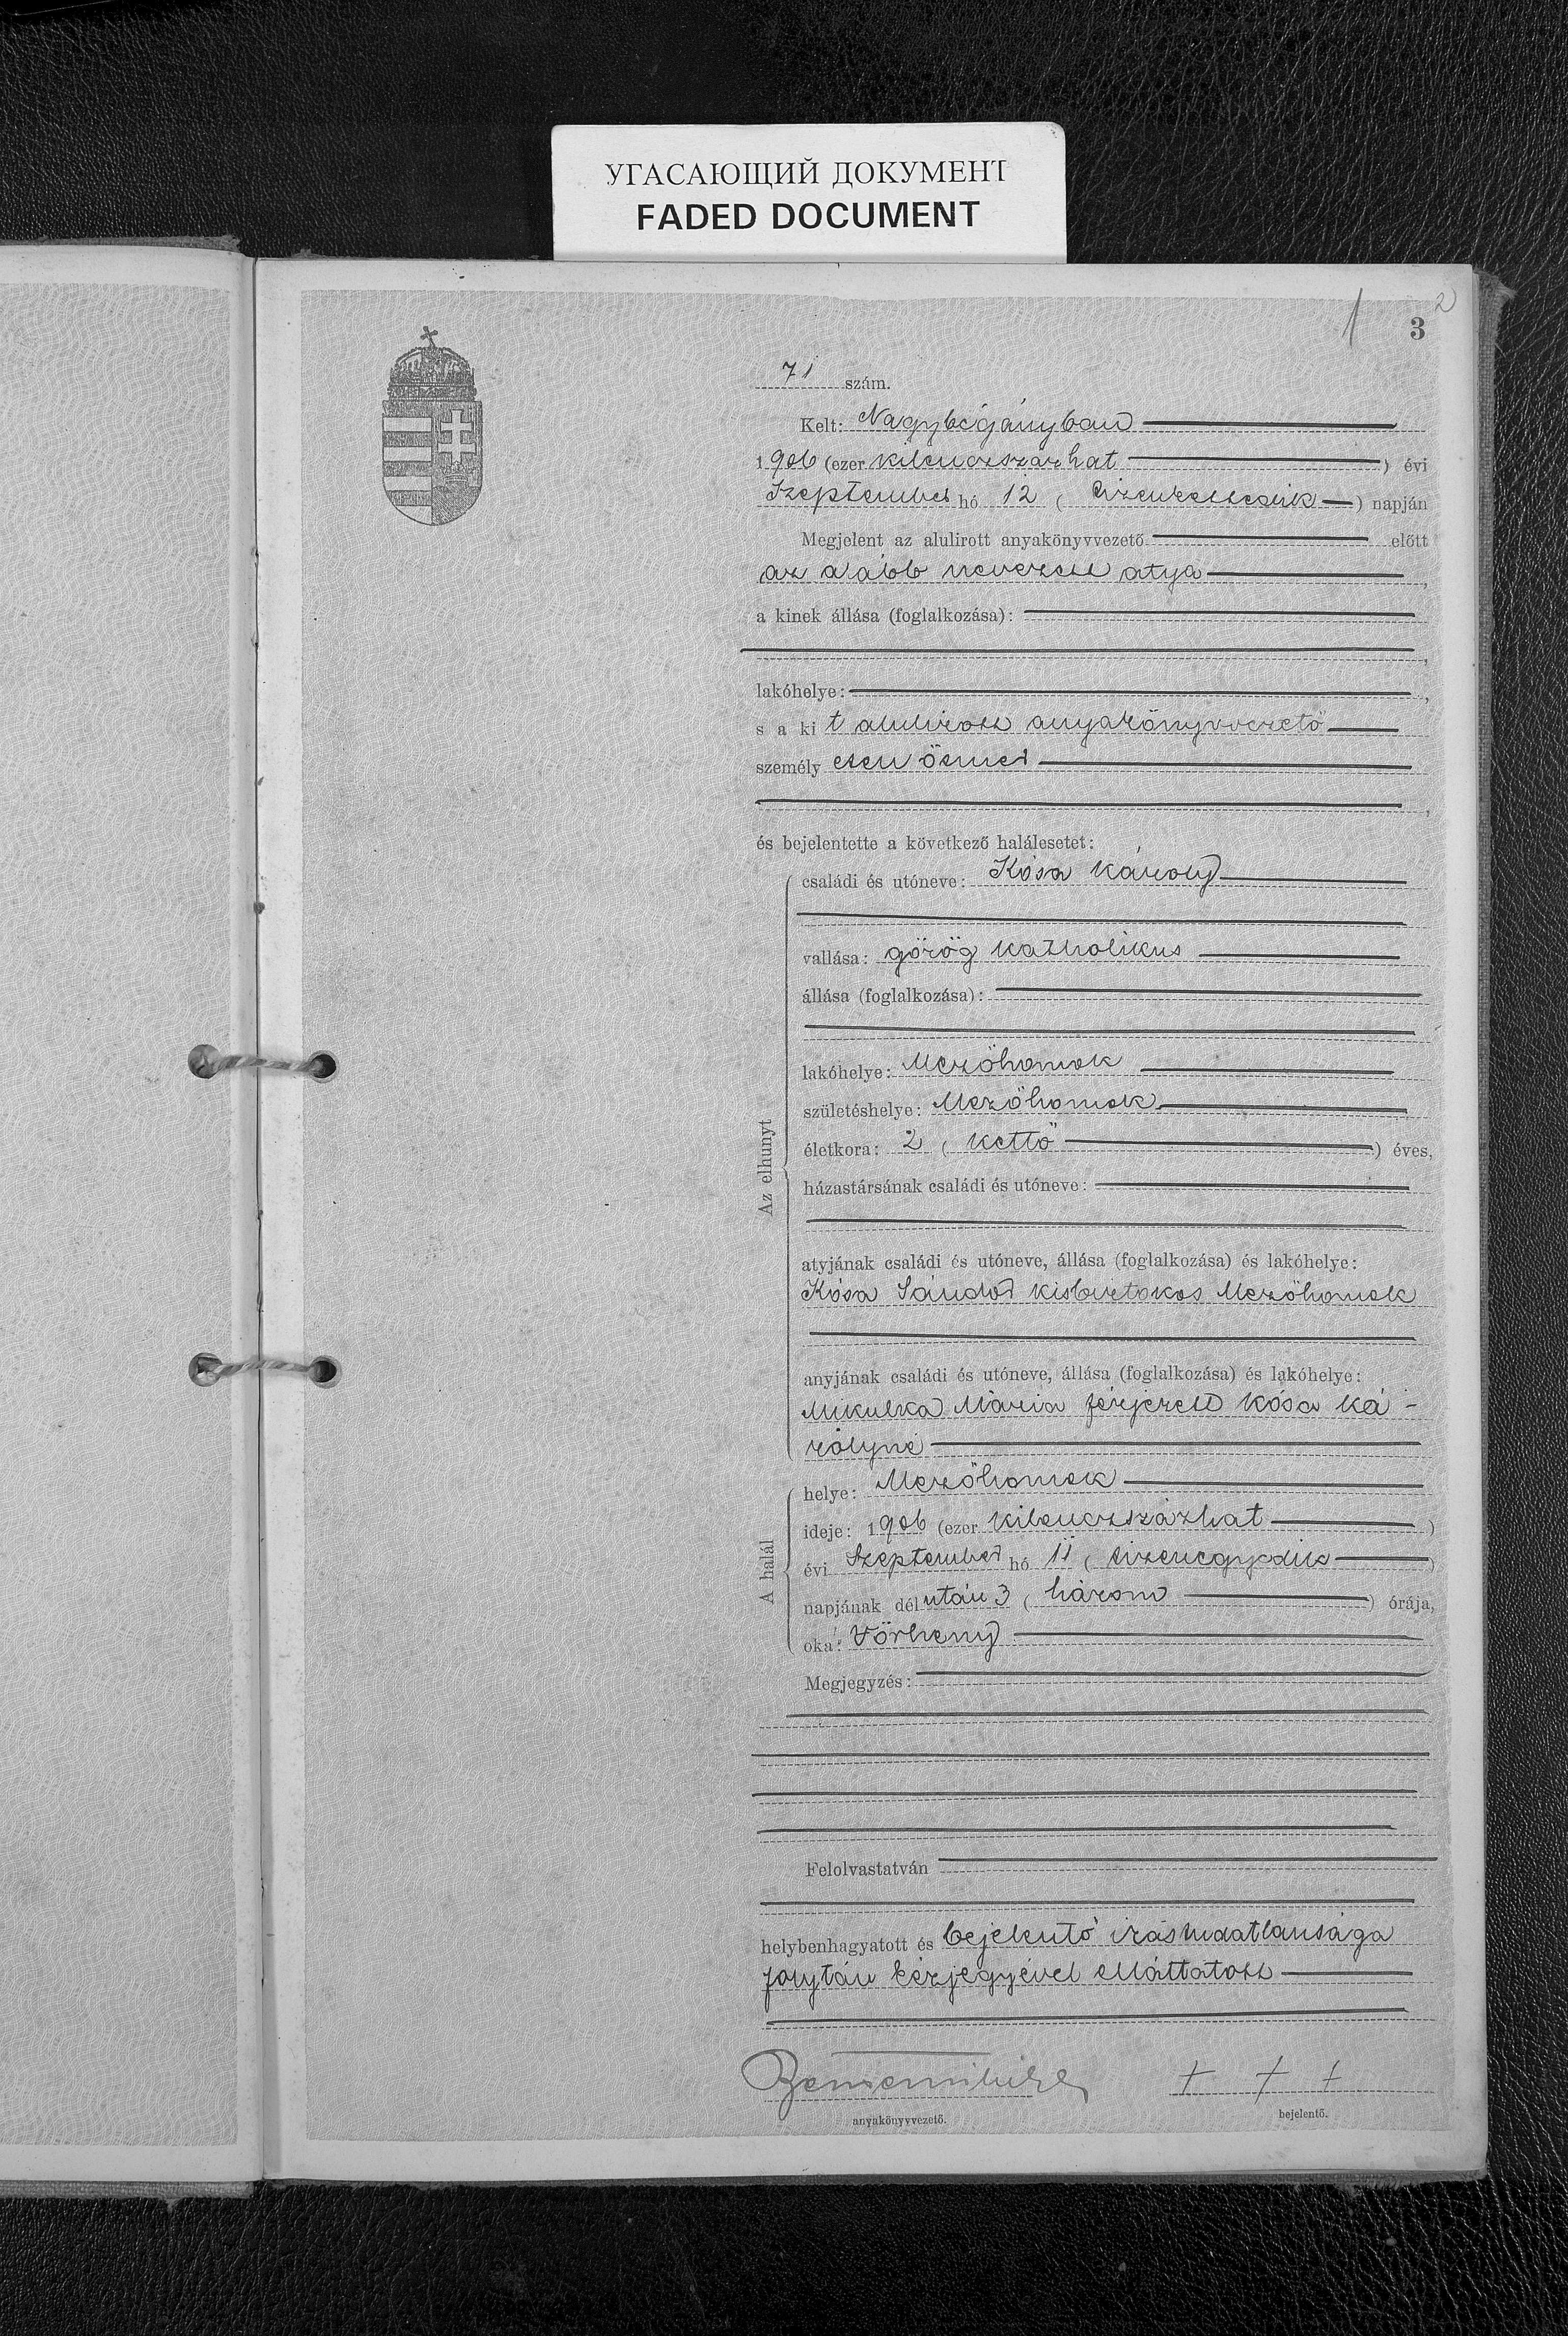 УГАСАЮЩИЙ ДОКУМЕНТ
FADED DOCUMENT
1 2
3
71 szám.
Kelt: Nagybégányban
1906 (ezer kilenczszázhat) évi
Szeptember hó 12 (tizenkettedik) napján
Megjelent az alulirott anyakönyvvezető előtt
az alább nevezett atya,
a kinek állása (foglalkozása):
lakóhelye:
s a kit alulirott anyakönyvvezető
személyesen ösmer
és bejelentette a következő halálesetet:
Az elhunyt
családi és utóneve: Kósa Károly
vallása: görög katholikus
állása (foglalkozása):
lakóhelye: Mezőhomok
születéshelye: Mezőhomok
életkora: 2 (kettő) éves,
házastársának családi és utóneve:
atyjának családi és utóneve, állása (foglalkozása) és lakóhelye:
Kósa Sándor kisbirtokos Mezőhomok
anyjának családi és utóneve, állása (foglalkozása) és lakóhelye:
Mikulka Mária férjezett Kósa Ká-
rolyné
A halál
helye: Mezőhomok
ideje: 1906 (ezer kilenczszázhat)
évi Szeptember hó 11 (tizenegyedik)
napjának délután 3 (három) órája,
oka: Vörheny
Megjegyzés:
Felolvastatván
helybenhagyatott és bejelentő irástudatlansága
folytán kézjegyével elláttatott
+ + +
anyakönyvvezető.
bejelentő.